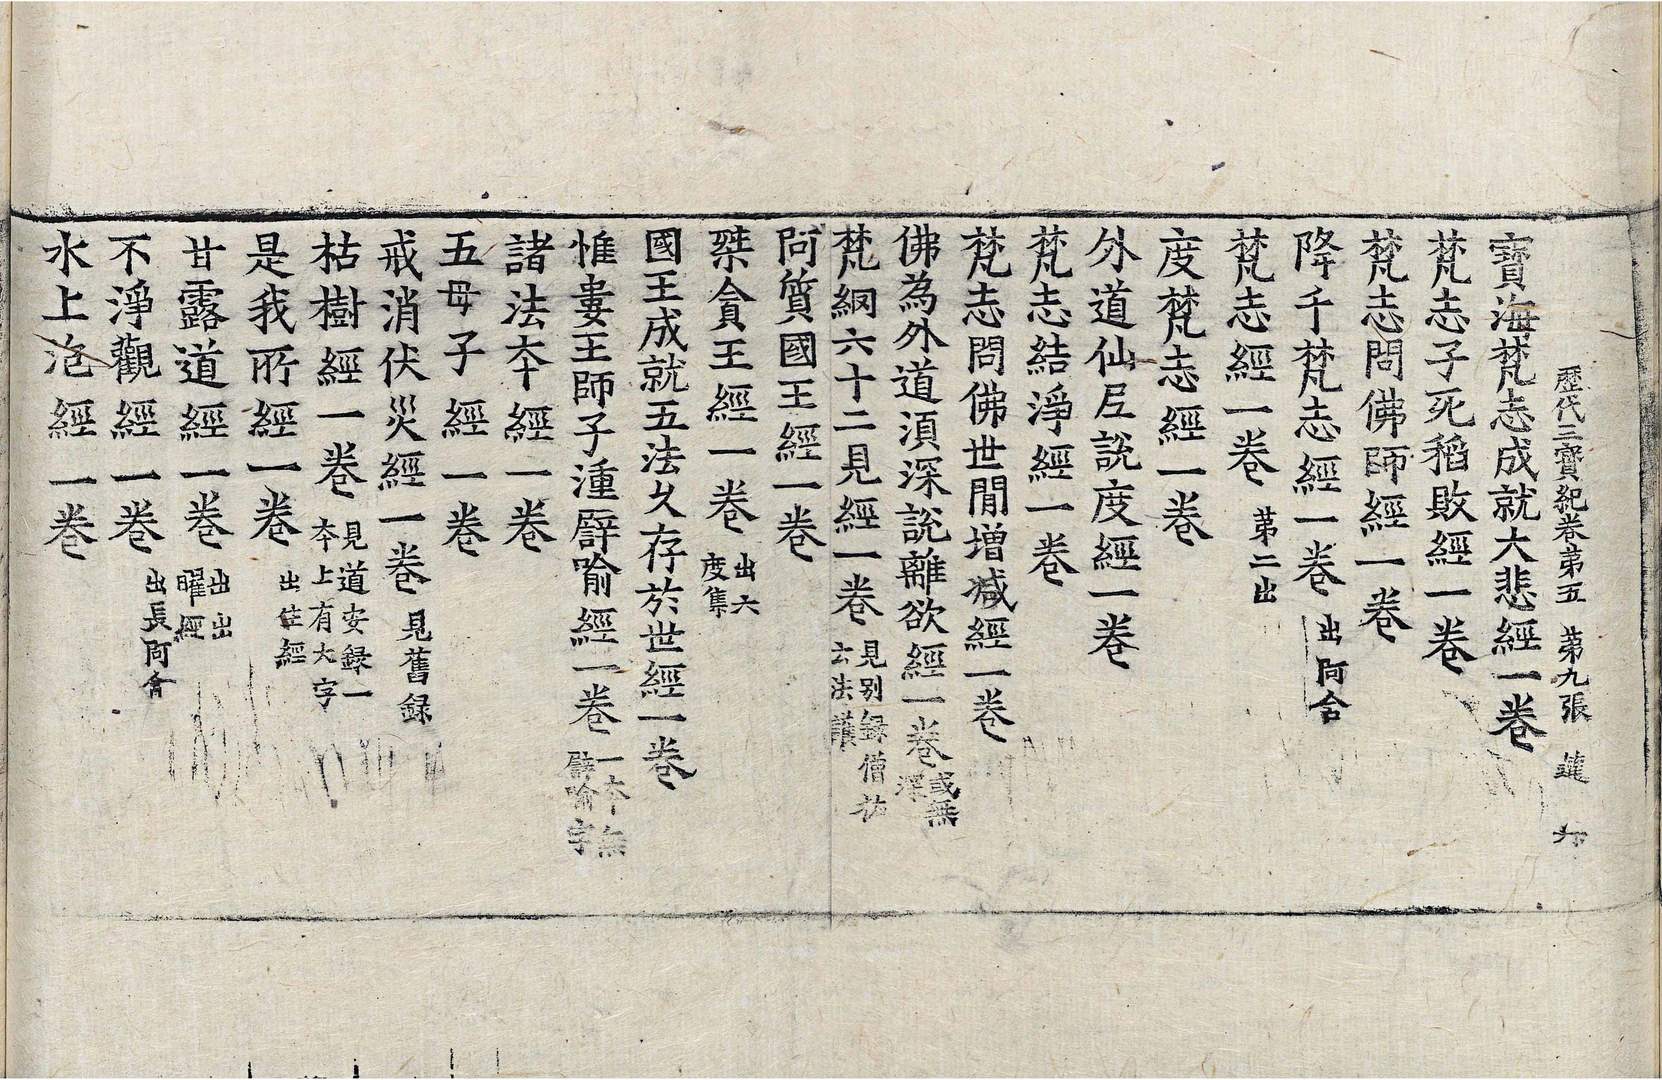 歷代三寶紀卷第五 第九張
寶海梵志成就大悲經一卷
梵志子死稻敗經一卷
梵志問佛師經一卷
降千梵志經一卷 出阿含
梵志經一卷 第二出
度梵志經一卷
外道仙尼說度經一卷
梵志結淨經一卷
梵志問佛世閒增減經一卷
佛為外道湏深說離欲經一卷 或無深
梵網六十二見經一卷 見別録僧祐云法護
阿質國王經一卷
桀貪王經一卷 出六度集
國王成就五法乆存於世經一卷
惟婁王師子湩譬喻經一卷 一本無譬喻字
諸法夲經一卷
五母子經一卷
戒消伏災經一卷 見舊録
枯樹經一卷 見道安録一夲上有大字
是我所經一卷 出生經
甘露道經一卷 出出曜經
不淨觀經一卷 出長阿含
水上泡經一卷